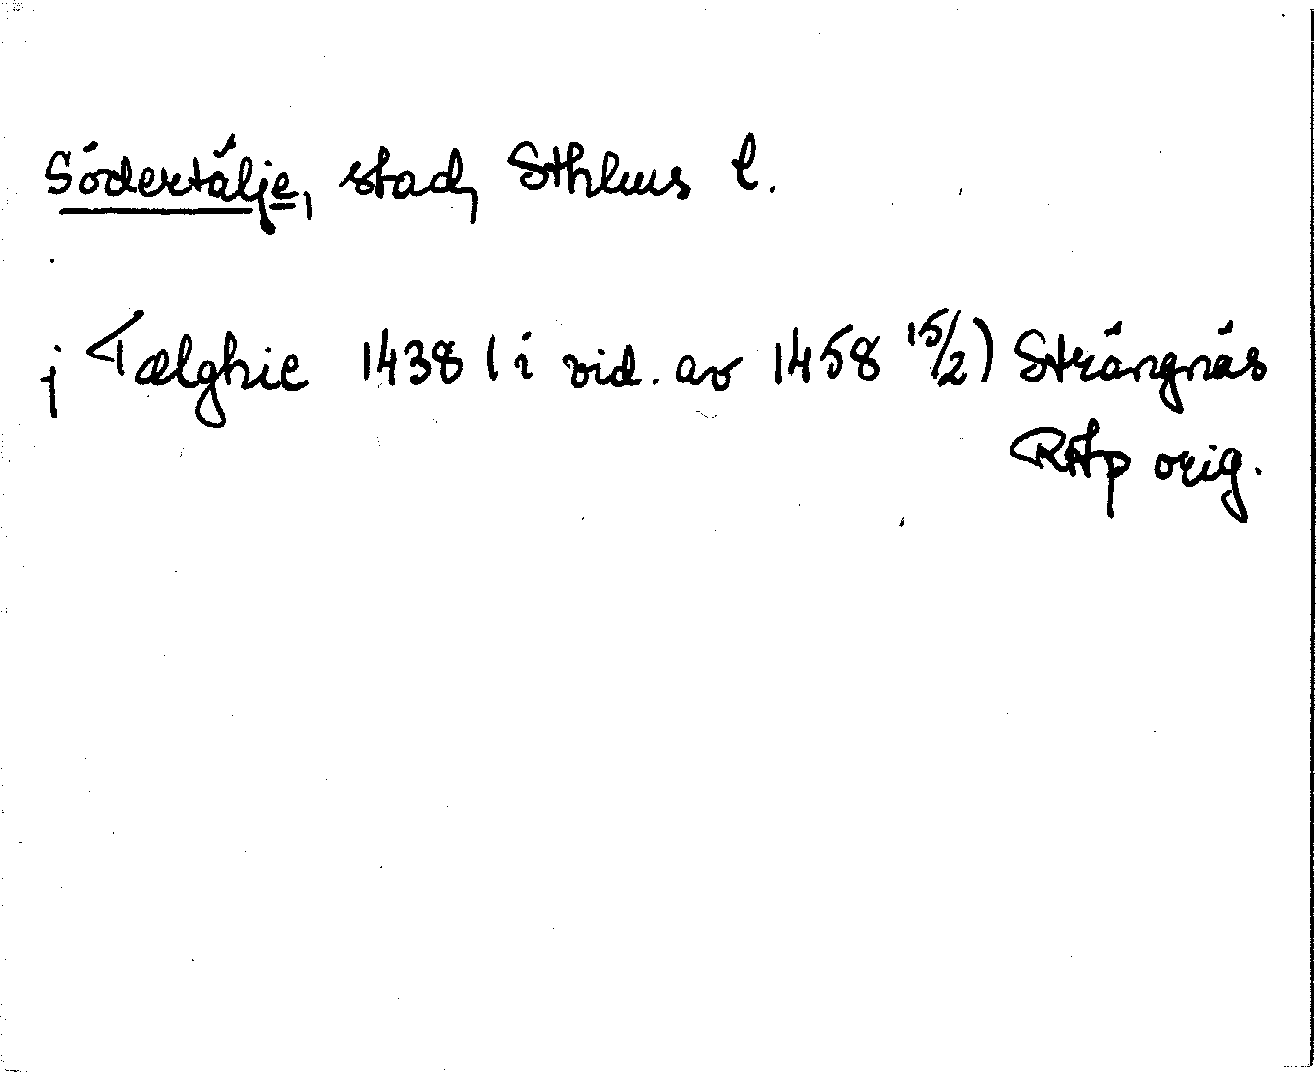 Södertälje, stad, Sthlms l.
j Tælghie 1438 (i vid. av 1458 15/2) Strängnäs
RAp orig.